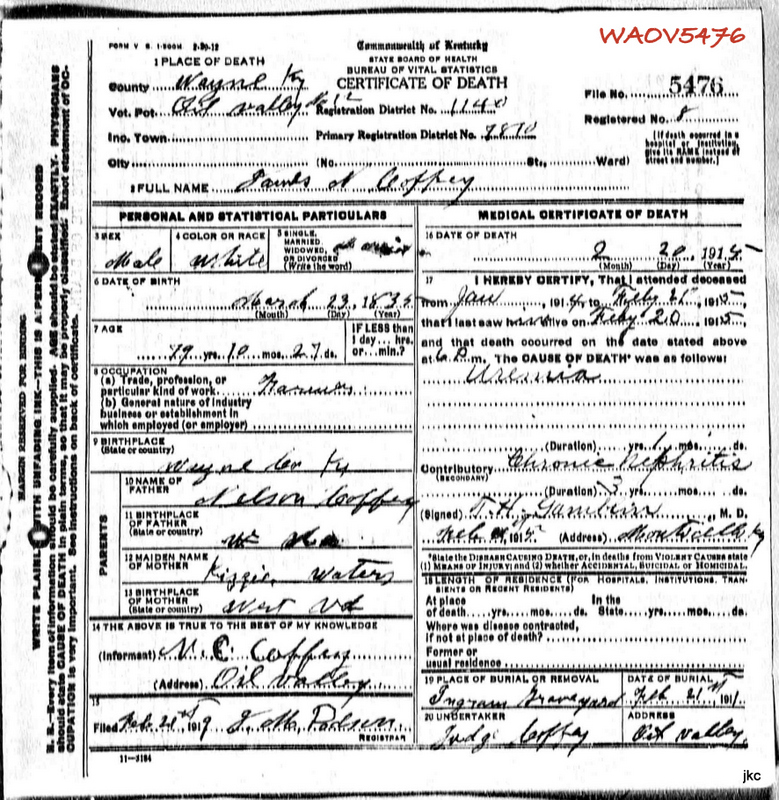 WAOV5476
FORM V. S. 1-500M 2-20-12
Commonwealth of Kentucky
STATE BOARD OF HEALTH
BUREAU OF VITAL STATISTICS
CERTIFICATE OF DEATH
1 PLACE OF DEATH
County Wayne Ky
Vot. Pct. Oil Valley No 12 Registration District No. 1140
Inc. Town Primary Registration District No. 7810
City (No. St., Ward)
File No. 5476
Registered No. 8
[If death occurred in a
hospital or institution,
give its NAME instead of
street and number.]
2 FULL NAME James N Coffey
PERSONAL AND STATISTICAL PARTICULARS
3 SEX
Male
4 COLOR OR RACE
White
5 SINGLE,
MARRIED,
WIDOWED,
OR DIVORCED
(Write the word)
6 DATE OF BIRTH
March 23, 1835
(Month) (Day) (Year)
7 AGE
79 yrs. 10 mos. 27 ds.
IF LESS than
1 day... hrs.
or... min.?
8 OCCUPATION
(a) Trade, profession, or
particular kind of work Farmer
(b) General nature of industry
business or establishment in
which employed (or employer)
9 BIRTHPLACE
(State or country)
Wayne Co Ky
PARENTS
10 NAME OF
FATHER
Nelson Coffey
11 BIRTHPLACE
OF FATHER
(State or country)
12 MAIDEN NAME
OF MOTHER
Kizzie Waters
13 BIRTHPLACE
OF MOTHER
(State or country)
West Va
14 THE ABOVE IS TRUE TO THE BEST OF MY KNOWLEDGE
(Informant) N. C Coffey
(Address) Oil Valley
15
Filed Feb. 21st 191
REGISTRAR
11-3184
MEDICAL CERTIFICATE OF DEATH
16 DATE OF DEATH
2 20, 1915
(Month) (Day) (Year)
17 I HEREBY CERTIFY, That I attended deceased
from Jan, 1914, to Feby, 1915,
that I last saw him alive on Feby 20 1915,
and that death occurred on the date stated above
at 6 P. m. The CAUSE OF DEATH* was as follows:
Uremia
(Duration) yrs. 1 mos. ds.
Contributory Chronic Nephritis
(SECONDARY)
(Duration) 3 yrs. mos. ds.
(Signed) T. H. M. D.
Feb, 1915 (Address) Monticello Ky
*State the DISEASE CAUSING DEATH, or, in deaths from VIOLENT CAUSES state
(1) MEANS OF INJURY; and (2) whether ACCIDENTAL, SUICIDAL OR HOMICIDAL.
18 LENGTH OF RESIDENCE (FOR HOSPITALS, INSTITUTIONS, TRAN-
SIENTS OR RECENT RESIDENTS)
At place In the
of death... yrs... mos... ds. State... yrs... mos... ds.
Where was disease contracted,
if not at place of death?
Former or
usual residence
19 PLACE OF BURIAL OR REMOVAL
Ingram Graveyard
DATE OF BURIAL
Feb 21st, 191
20 UNDERTAKER
Judge Coffey
ADDRESS
Oil Valley
MARGIN RESERVED FOR BINDING
WRITE PLAINLY WITH UNFADING INK—THIS IS A PERMANENT RECORD
N. B.—Every item of information should be carefully supplied. AGE should be stated EXACTLY. PHYSICIANS
should state CAUSE OF DEATH in plain terms, so that it may be properly classified. Exact statement of OC-
CUPATION is very important. See instructions on back of certificate.
jkc